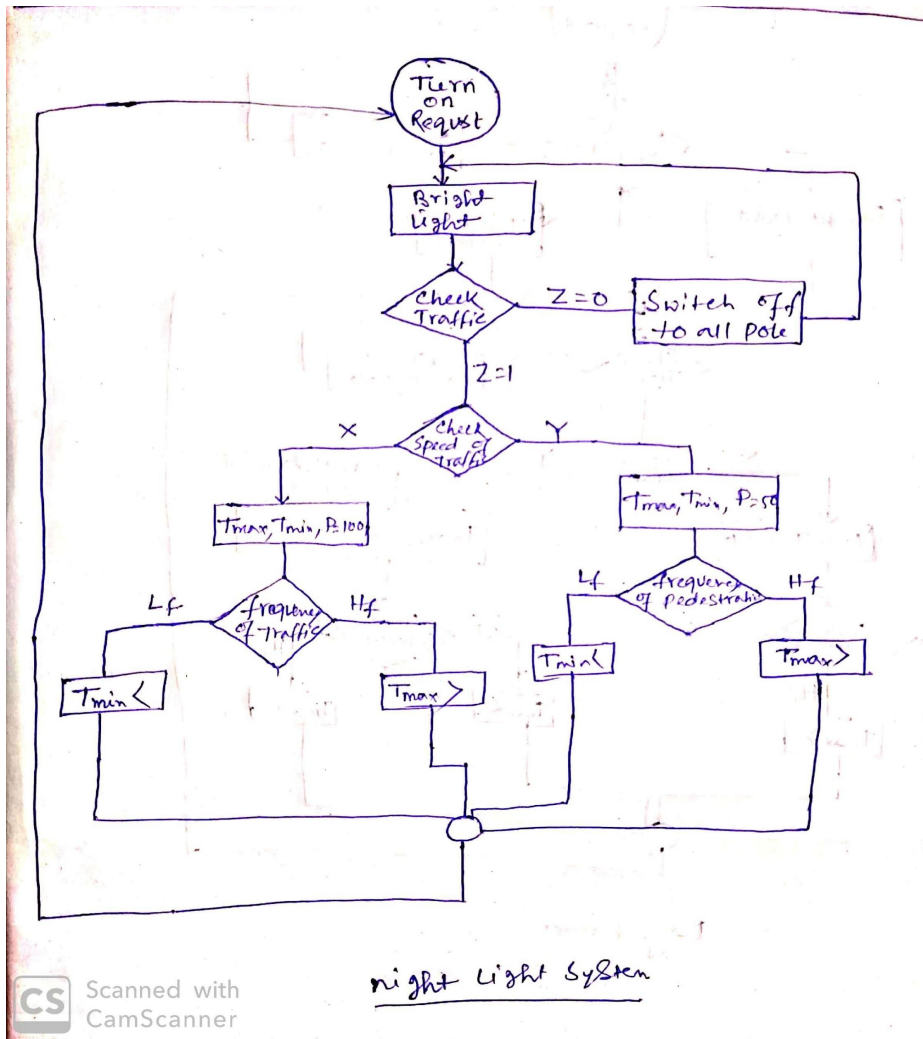 Turn
on
Requst
Bright
Light
Check
Traffic
Z=0
Switch off
to all pole
Z=1
Check
Speed of
traffic
X
Y
Tmax, Tmin, P=100
Tmax, Tmin, P=50
frequency
of Traffic
Lf
Hf
frequency
of pedestrain
Lf
Hf
Tmin<
Tmax>
Tmin<
Tmax>
night Light System
CS
Scanned with
CamScanner